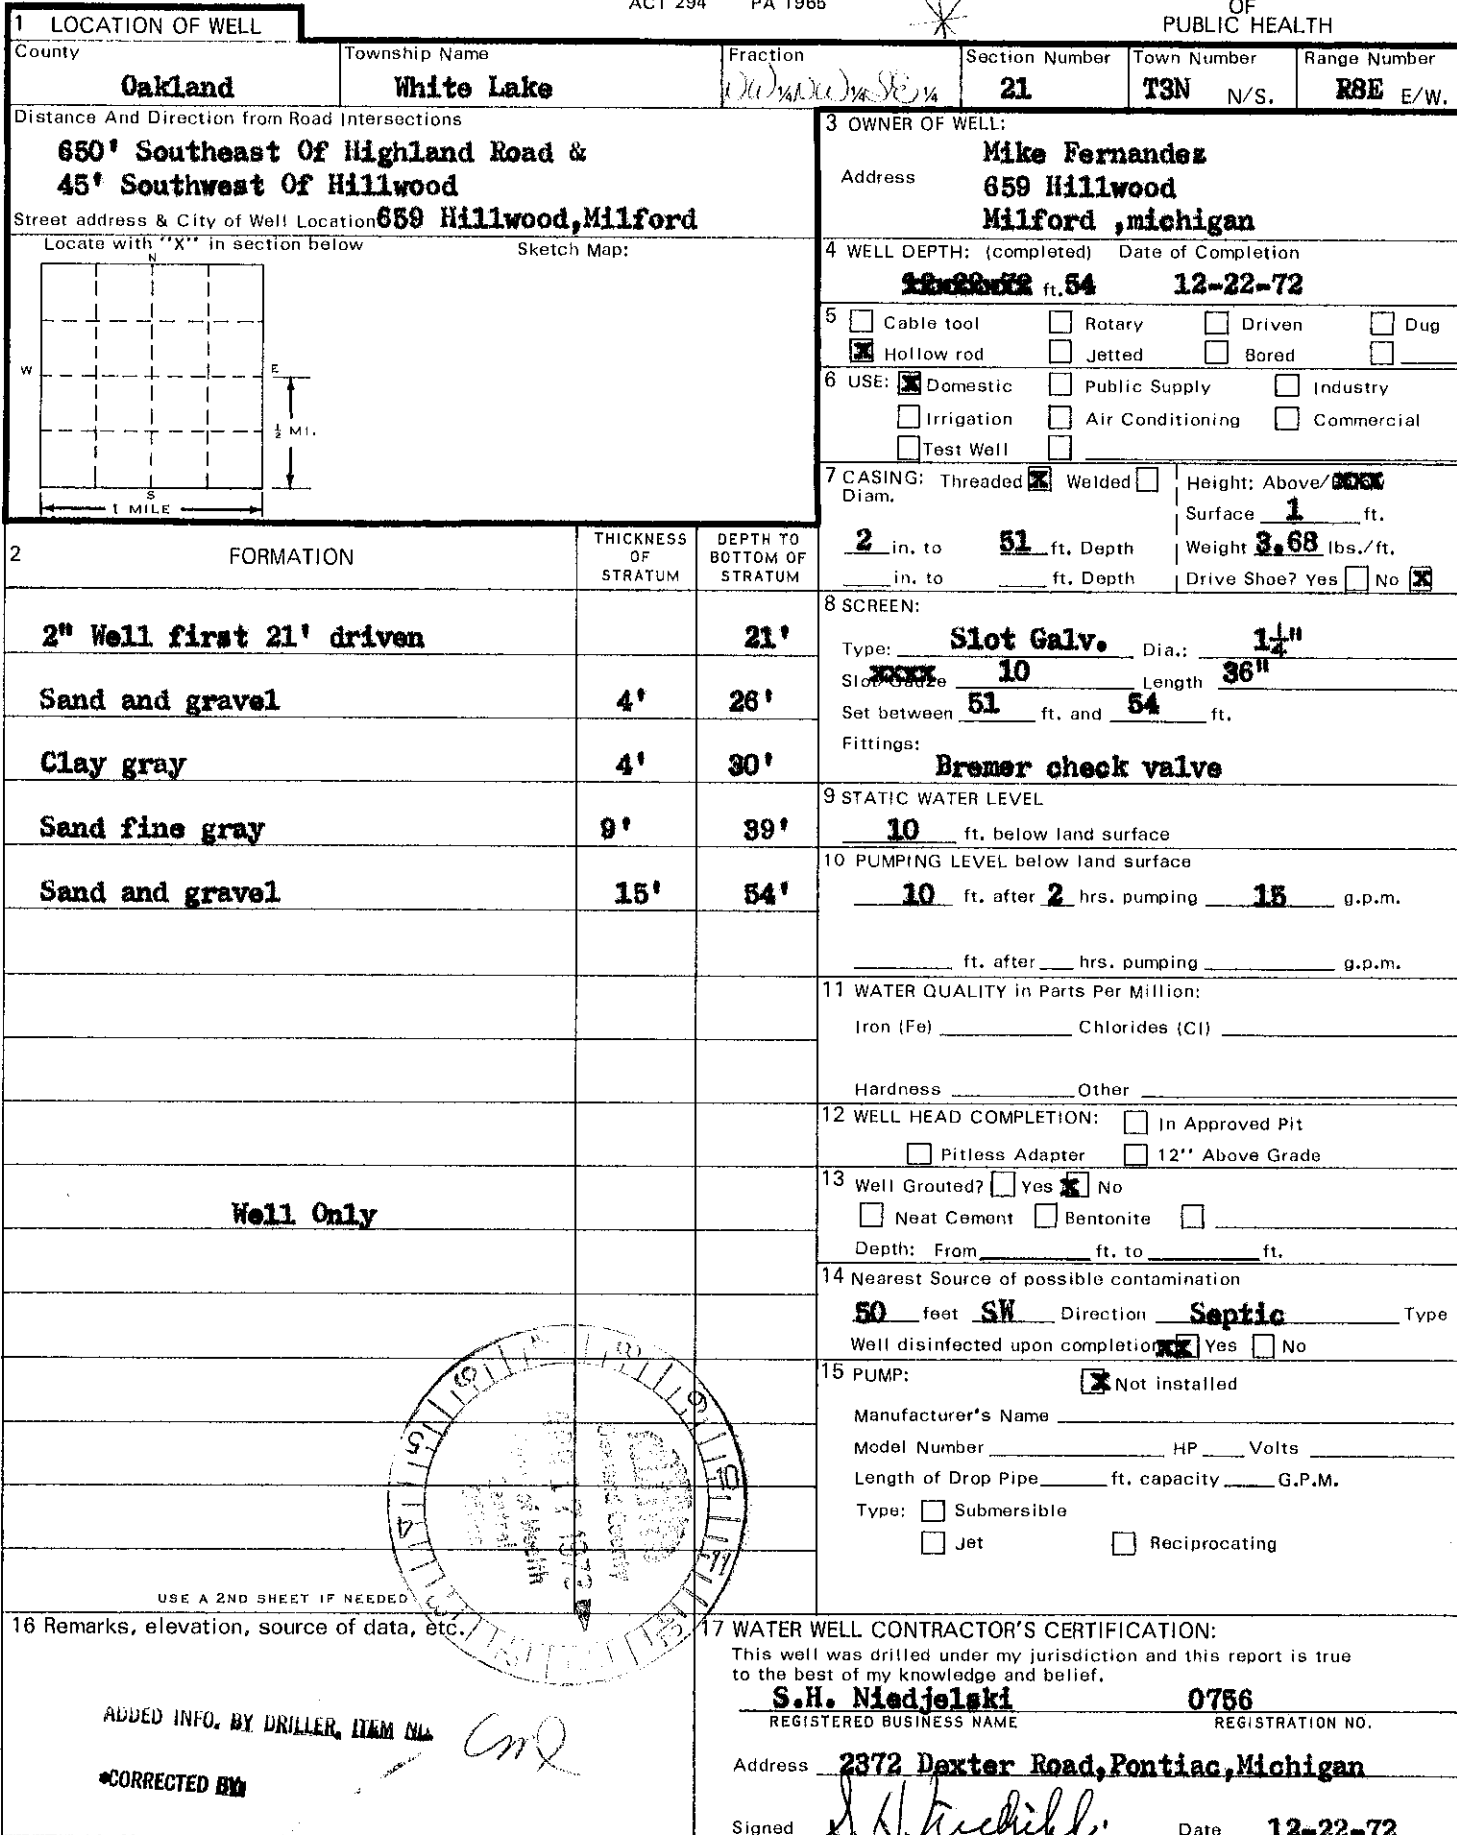 ACT 294 PA 1965
OF
PUBLIC HEALTH
1 LOCATION OF WELL
County
Oakland
Township Name
White Lake
Fraction
NW¼NW¼SE¼
Section Number
21
Town Number
T3N N/S.
Range Number
R8E E/W.
Distance And Direction from Road Intersections
650' Southeast Of Highland Road &
45' Southwest Of Hillwood
Street address & City of Well Location 659 Hillwood,Milford
Locate with "X" in section below
Sketch Map:
N
W
E
½ MI.
S
1 MILE
3 OWNER OF WELL:
Mike Fernandez
Address 659 Hillwood
Milford ,michigan
4 WELL DEPTH: (completed) Date of Completion
ft. 54 12-22-72
5 Cable tool Rotary Driven Dug
X Hollow rod Jetted Bored
6 USE: X Domestic Public Supply Industry
Irrigation Air Conditioning Commercial
Test Well
7 CASING: Threaded X Welded
Diam.
2 in. to 51 ft. Depth
in. to ft. Depth
Height: Above/
Surface 1 ft.
Weight 3.68 lbs./ft.
Drive Shoe? Yes No X
2 FORMATION
THICKNESS OF STRATUM
DEPTH TO BOTTOM OF STRATUM
2" Well first 21' driven 21'
Sand and gravel 4' 26'
Clay gray 4' 30'
Sand fine gray 9' 39'
Sand and gravel 15' 54'
Well Only
USE A 2ND SHEET IF NEEDED
8 SCREEN:
Type: Slot Galv. Dia.: 1¼"
Slot/Gauze 10 Length 36"
Set between 51 ft. and 54 ft.
Fittings:
Bremer check valve
9 STATIC WATER LEVEL
10 ft. below land surface
10 PUMPING LEVEL below land surface
10 ft. after 2 hrs. pumping 15 g.p.m.
ft. after hrs. pumping g.p.m.
11 WATER QUALITY in Parts Per Million:
Iron (Fe) Chlorides (Cl)
Hardness Other
12 WELL HEAD COMPLETION: In Approved Pit
Pitless Adapter 12" Above Grade
13 Well Grouted? Yes X No
Neat Cement Bentonite
Depth: From ft. to ft.
14 Nearest Source of possible contamination
50 feet SW Direction Septic Type
Well disinfected upon completion XX Yes No
15 PUMP: X Not installed
Manufacturer's Name
Model Number HP Volts
Length of Drop Pipe ft. capacity G.P.M.
Type: Submersible
Jet Reciprocating
16 Remarks, elevation, source of data, etc.
ADDED INFO. BY DRILLER, ITEM NO.
*CORRECTED BY
17 WATER WELL CONTRACTOR'S CERTIFICATION:
This well was drilled under my jurisdiction and this report is true
to the best of my knowledge and belief.
S.H. Niedjelski 0756
REGISTERED BUSINESS NAME REGISTRATION NO.
Address 2372 Dexter Road,Pontiac,Michigan
Signed Date 12-22-72